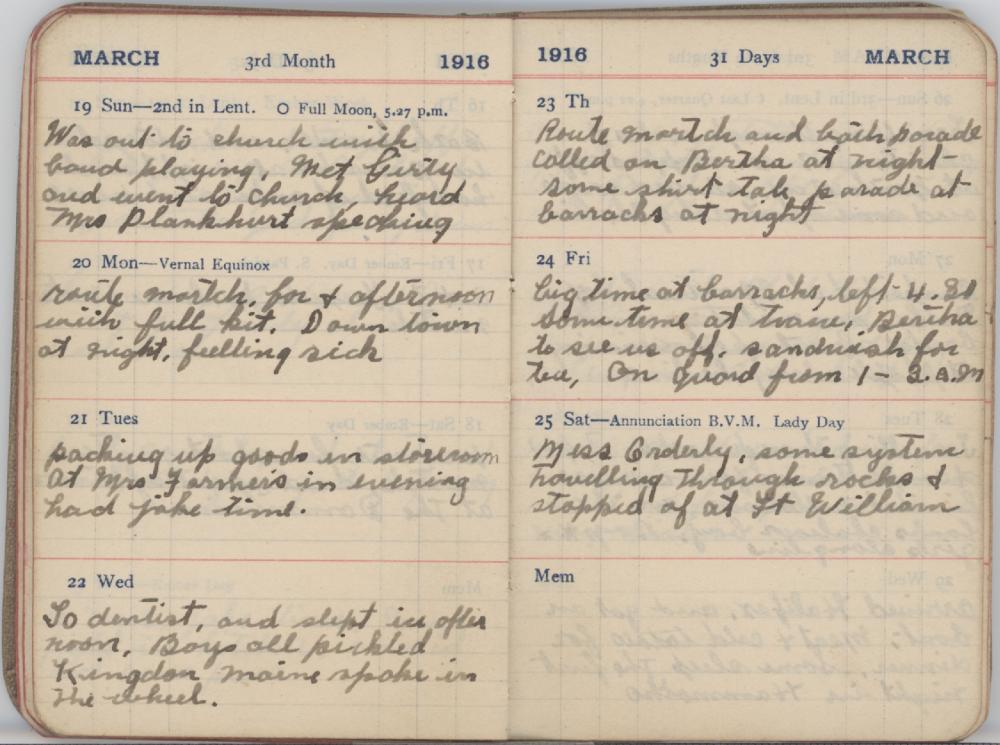 MARCH 3rd Month 1916
19 Sun—2nd in Lent. O Full Moon, 5.27 p.m.
Was out to church with
band playing. Met Girty
and went to church, heard
Mrs Plankhurt speching
20 Mon—Vernal Equinox
route martch, for & afternoon
with full kit. Down town
at night, feelling sick
21 Tues
packing up goods in storeroom
At Mrs Farmers in evening
had jake time.
22 Wed
To dentist, and slept in after
noon, Boys all pickled
Kingdon maine spoke in
the wheel.
1916 31 Days MARCH
23 Th
Route martch and bath parade
called on Bertha at night
some shirt tale parade at
barracks at night
24 Fri
big time at barracks, left 4.30
some time at train, Bertha
to see us off. sandwish for
tea, On guard from 1 - 3.a.m
25 Sat—Annunciation B.V.M. Lady Day
Mess Orderly, some system
travelling through rocks &
stopped of at Ft William
Mem